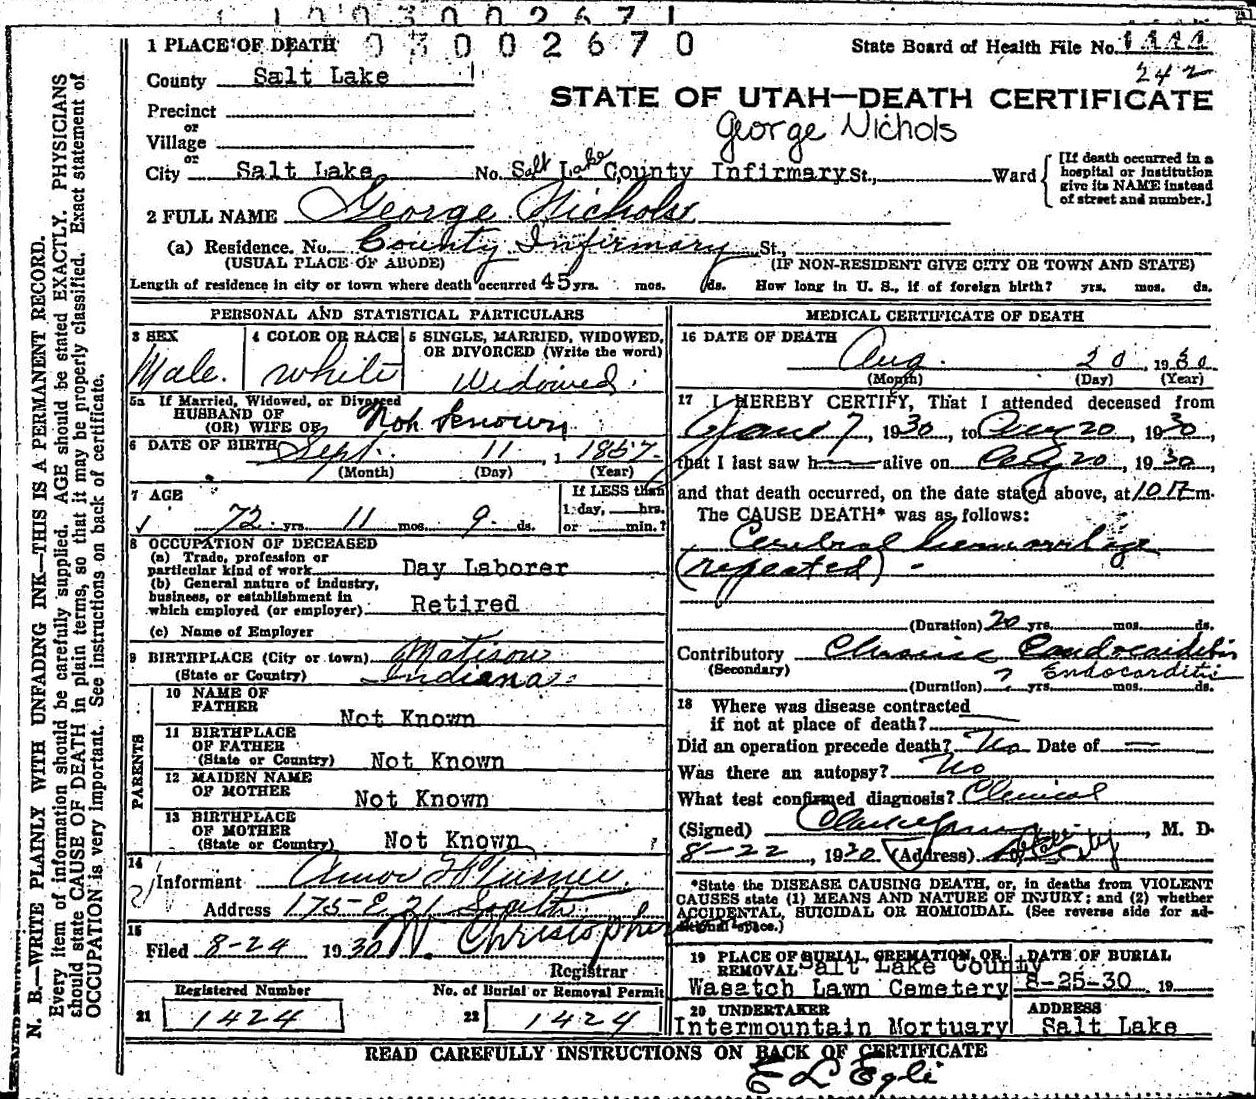 1003002671
03002670
1 PLACE OF DEATH
State Board of Health File No. 1444
242
County Salt Lake
STATE OF UTAH—DEATH CERTIFICATE
Precinct
or
George Nichols
Village
or
City Salt Lake No. Salt Lake County Infirmary St., Ward
[If death occurred in a hospital or institution give its NAME instead of street and number.]
2 FULL NAME George Nichols
(a) Residence. No. County Infirmary St.,
(USUAL PLACE OF ABODE) (IF NON-RESIDENT GIVE CITY OR TOWN AND STATE)
Length of residence in city or town where death occurred 45 yrs. mos. ds. How long in U. S., if of foreign birth? yrs. mos. ds.
PERSONAL AND STATISTICAL PARTICULARS
3 SEX Male.
4 COLOR OR RACE White
5 SINGLE, MARRIED, WIDOWED, OR DIVORCED (Write the word) Widowed.
5a If Married, Widowed, or Divorced
HUSBAND OF
(OR) WIFE OF Not Known
6 DATE OF BIRTH Sept. 11, 1 1857
(Month) (Day) (Year)
7 AGE
72 yrs. 11 mos. 9 ds.
If LESS than
1 day, hrs.
or min.?
8 OCCUPATION OF DECEASED
(a) Trade, profession or
particular kind of work Day Laborer
(b) General nature of industry,
business, or establishment in
which employed (or employer) Retired
(c) Name of Employer
9 BIRTHPLACE (City or town) Matison
(State or Country) Indiana.
PARENTS
10 NAME OF
FATHER Not Known
11 BIRTHPLACE
OF FATHER
(State or Country) Not Known
12 MAIDEN NAME
OF MOTHER Not Known
13 BIRTHPLACE
OF MOTHER
(State or Country) Not Known
14
Informant Turner
Address 175 E 21 South
15
Filed 8-24 1930 Christopherson
Registrar
Registered Number No. of Burial or Removal Permit
21 1424 22 1424
MEDICAL CERTIFICATE OF DEATH
16 DATE OF DEATH
Aug. 20, 1930
(Month) (Day) (Year)
17 I HEREBY CERTIFY, That I attended deceased from
June 7, 1930, to Aug 20, 1930,
that I last saw h alive on Aug 20, 1930,
and that death occurred, on the date stated above, at m.
The CAUSE DEATH* was as follows:
Cerebral hemorrhage
(repeated) -
(Duration) 20 yrs. mos. ds.
Contributory Chronic Endocarditis
(Secondary) Endocarditis
(Duration) ? yrs. mos. ds.
18 Where was disease contracted
if not at place of death?
Did an operation precede death? No Date of
Was there an autopsy? No
What test confirmed diagnosis? Clinical
(Signed) , M. D.
8-22, 1930 (Address) City
*State the DISEASE CAUSING DEATH, or, in deaths from VIOLENT
CAUSES state (1) MEANS AND NATURE OF INJURY; and (2) whether
ACCIDENTAL, SUICIDAL OR HOMICIDAL. (See reverse side for ad-
ditional space.)
19 PLACE OF BURIAL, CREMATION, OR
REMOVAL Salt Lake County
Wasatch Lawn Cemetery
DATE OF BURIAL
8-25-30, 19
20 UNDERTAKER
Intermountain Mortuary
ADDRESS
Salt Lake
READ CAREFULLY INSTRUCTIONS ON BACK OF CERTIFICATE
E L Egli
N. B.—WRITE PLAINLY WITH UNFADING INK—THIS IS A PERMANENT RECORD.
Every item of information should be carefully supplied. AGE should be stated EXACTLY. PHYSICIANS
should state CAUSE OF DEATH in plain terms, so that it may be properly classified. Exact statement of
OCCUPATION is very important. See instructions on back of certificate.